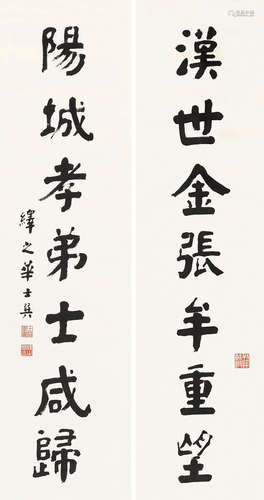 漢世金張年重望
陽城孝弟士咸歸
繹之華士奐